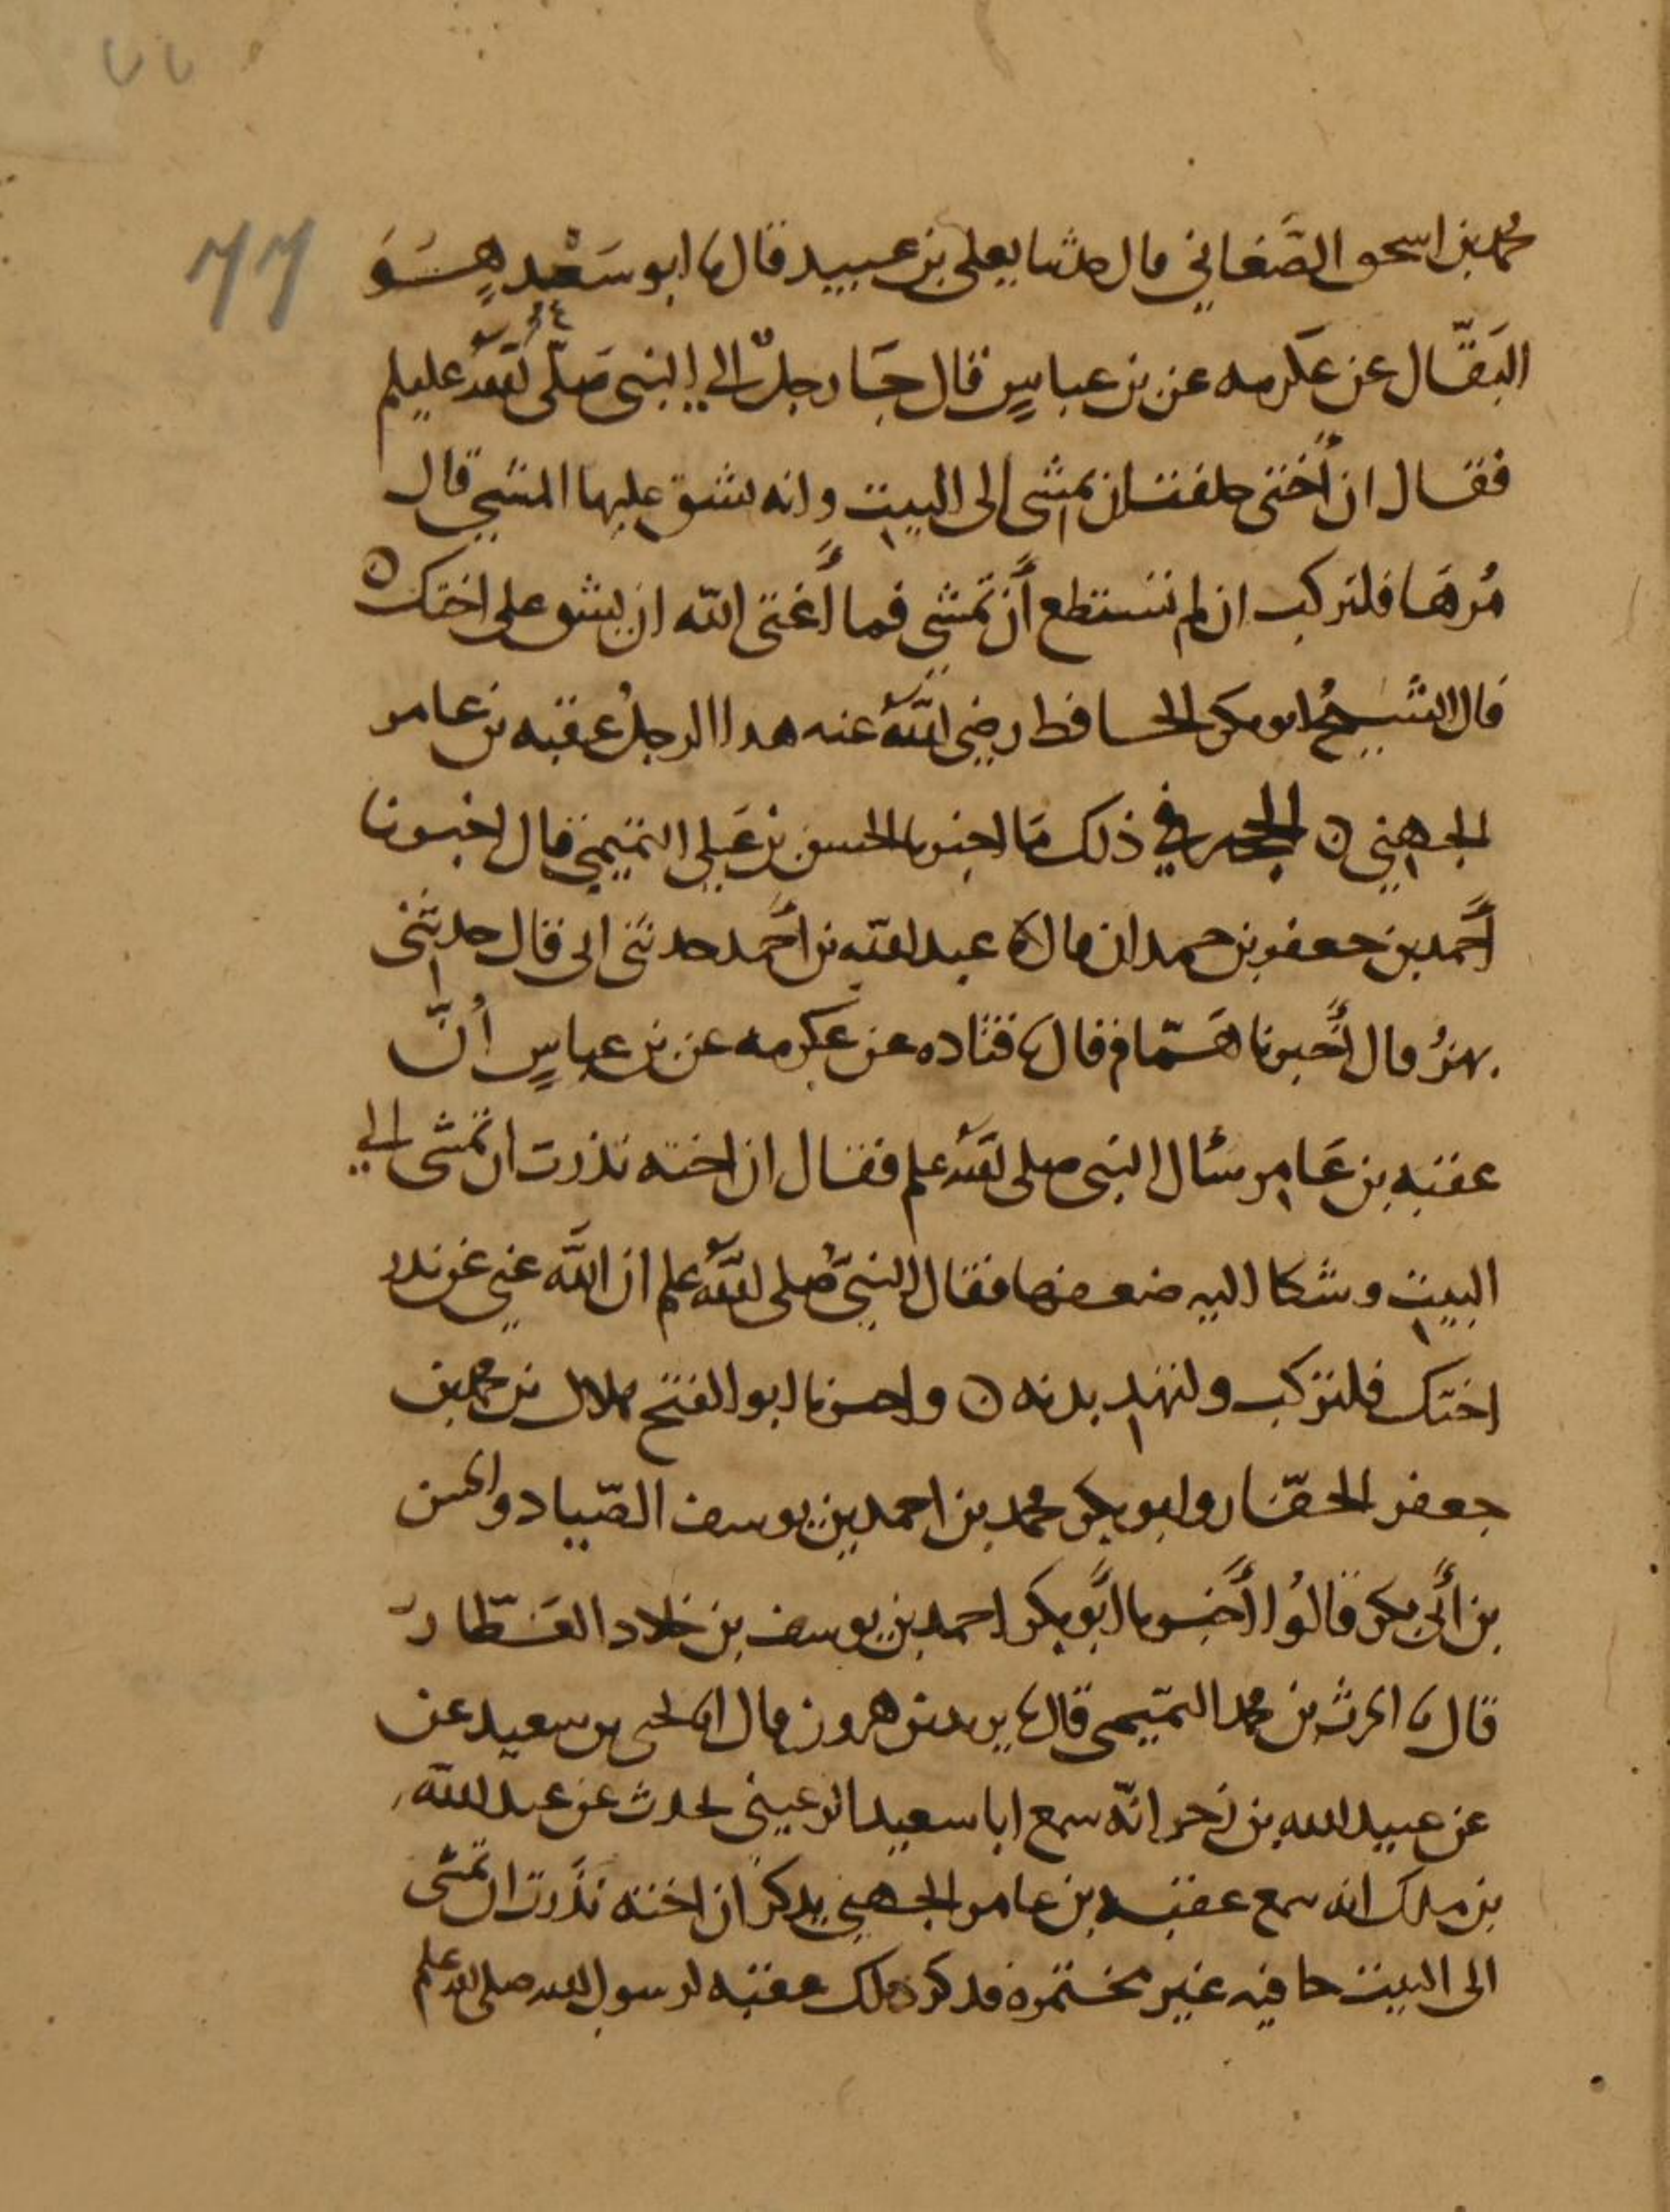 ٧٧
77
محمد بن اسحق الصَّغاني قال حدثنا يعلى بن عبيد قال ثنا ابو سَعْد هُوَ
البَقَّال عن عكرمه عن بن عباسٍ قال جَا رجلٌ الى النبى صَلّى الله عليه وسلم
فقال ان أُختى حلفت ان تمشى الى البيت وانه يشق عليها المشي قال
مُرهَا فلتركب ان لم تستطع أَن تمشي فما أَغنى الله ان يشق على اختك ٥
قال الشيخُ ابو بكر الحافظ رضي اللهُ عنه هذا الرجلُ عقبه بن عامر
الجهني ٥ الحجه في ذلك مَا اخبرنا الحسن بن عَلي التميمي قال اخبرنا
أَحمد بن جعفر بن حمدان قال ثنا عبد الله بن أَحمد حدثنى ابى قال حدثنى
بهزُ قال أَخبرنا هَمّام قال ثنا قتاده عن عكرمه عن بن عباسٍ أنَّ
عقبه بن عَامر سأل النبى صلى الله علم فقال ان اخته نذرت ان تمشى الي
البيت وشكا اليه ضعفها فقال النبيُّ صلى اللهُ علم ان اللَّه غني عن نذر
اختك فلتركب ولتهد بدنه ٥ واخبرنا ابو الفتح هلال بن محمد بن
جعفر الحفّار وابو بكر محمد بن احمد بن يوسف الصّياد والحسن
بن أَبى بكر قالُوا أَخبرنا أَبو بكر احمد بن يوسف بن خلاد العَطّار
قال ثنا الحرث بن محمد التميمى قال ثنا يزيد بن هرون قال انا يحيى بن سعيد عن
عن عبيد الله بن زحر انّه سمع ابا سعيد الرعيني يحدث عن عبد الله
بن ملك انه سمع عقبه بن عامر الجهني يذكر ان اخته نذَرت ان تمشى
الى البيت حافيه غير مختمره فذكر ذلك عقبه لرسول الله صلى الله علم